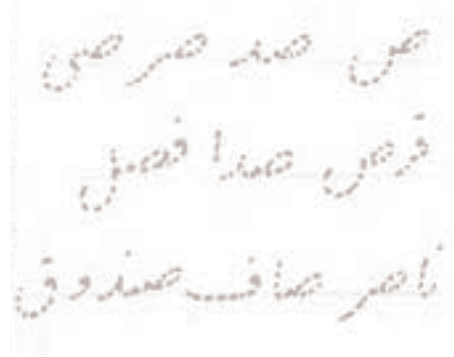 ص صد صر ص
قرص صدا فصل
ناصر صاف صندوق